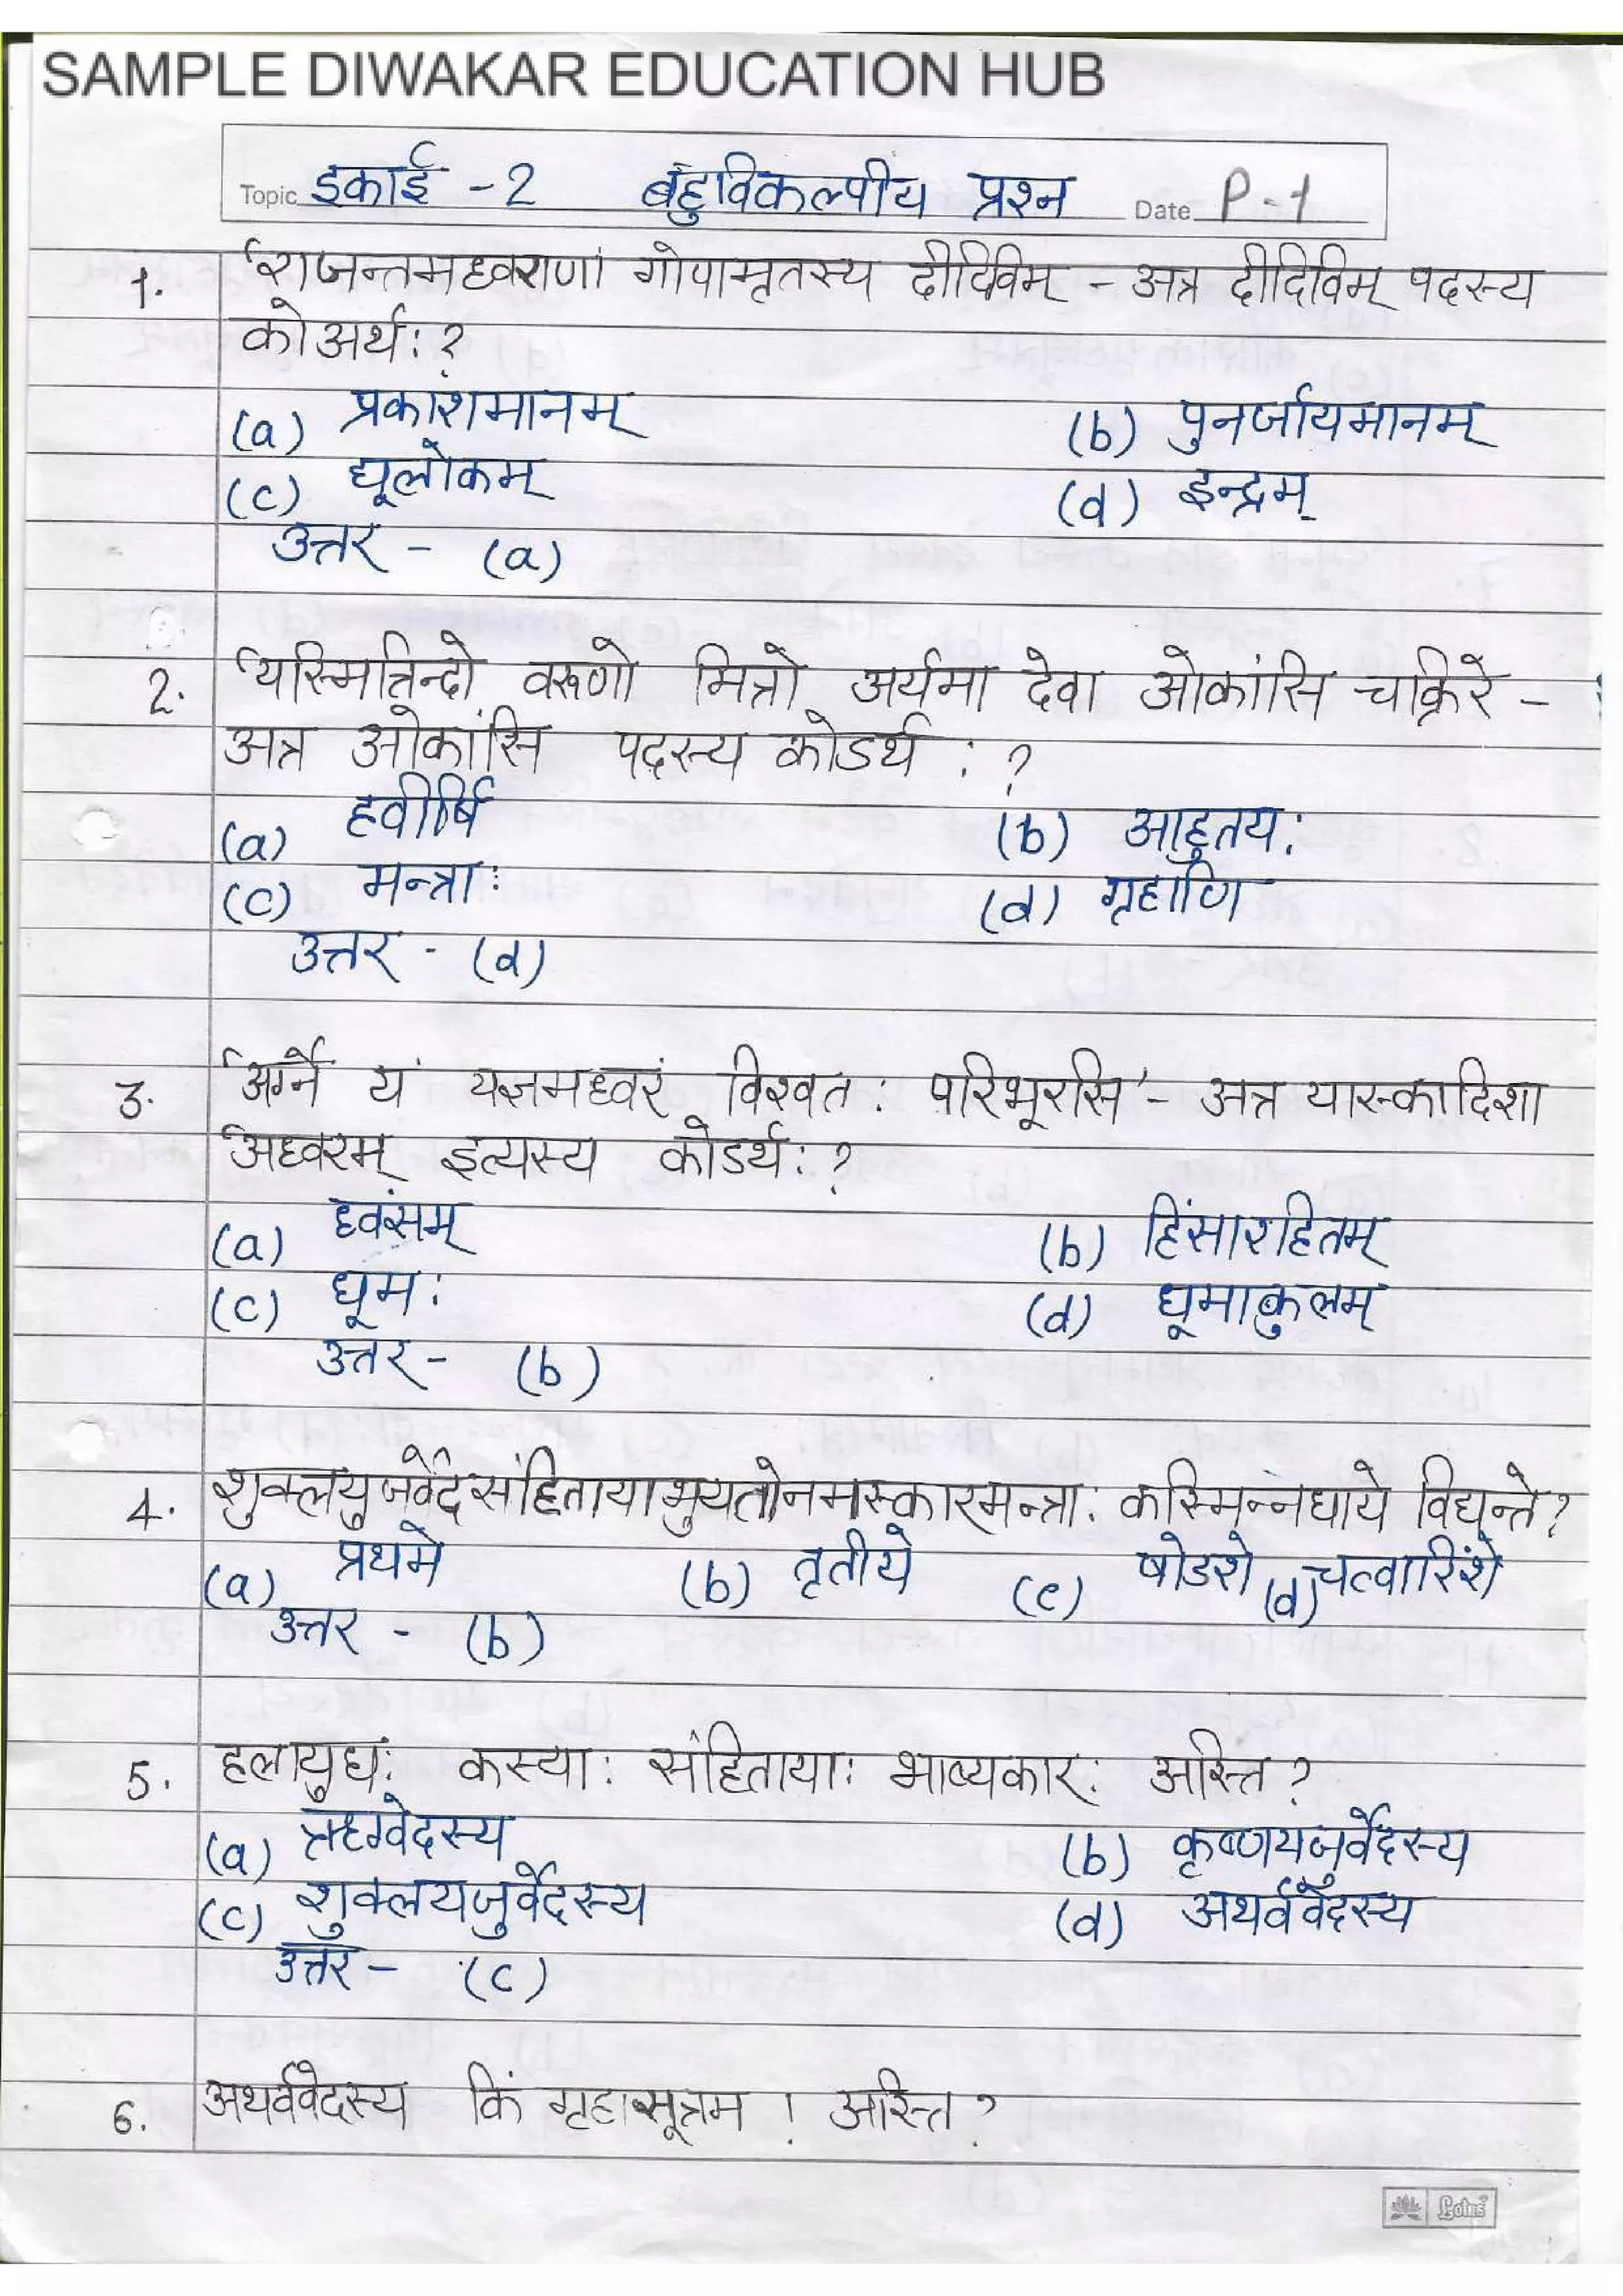 SAMPLE DIWAKAR EDUCATION HUB
Topic इकाई - 2 बहुविकल्पीय प्रश्न Date P-1
1. 'राजन्तमध्वराणां गोपामृतस्य दीदिविम् - अत्र दीदिविम् पदस्य
को अर्थ: ?
(a) प्रकाशमानम् (b) पुनर्जायमानम्
(c) द्यूलोकम् (d) इन्द्रम्
उत्तर - (a)
2. 'यस्मिन्निन्द्रो वरुणो मित्रो अर्यमा देवा ओकांसि चक्रिरे -
अत्र ओकांसि पदस्य कोडर्थ : ?
(a) हवींषि (b) आहुतय:
(c) मन्त्रा: (d) गृहाणि
उत्तर - (d)
3. 'अग्ने यं यज्ञमध्वरं विश्वत: परिभूरसि' - अत्र यास्कादिशा
'अध्वरम् इत्यस्य कोडर्थ: ?
(a) ध्वंसम् (b) हिंसारहितम्
(c) धूम: (d) धूमाकुलम्
उत्तर - (b)
4. शुक्लयुजर्वेदसंहितायामुयतोनमस्कारमन्त्रा: कस्मिन्नधाये विद्यन्ते ?
(a) प्रथमे (b) तृतीये (c) षोडशे (d) चत्वारिंशे
उत्तर - (b)
5. हलायुध: कस्या: संहिताया: भाष्यकार: अस्ति ?
(a) ऋग्वेदस्य (b) कृष्णयजुर्वेदस्य
(c) शुक्लयजुर्वेदस्य (d) अथर्ववेदस्य
उत्तर - (c)
6. अथर्ववेदस्य किं गृहासूत्रम ! अस्ति ?
Lotus